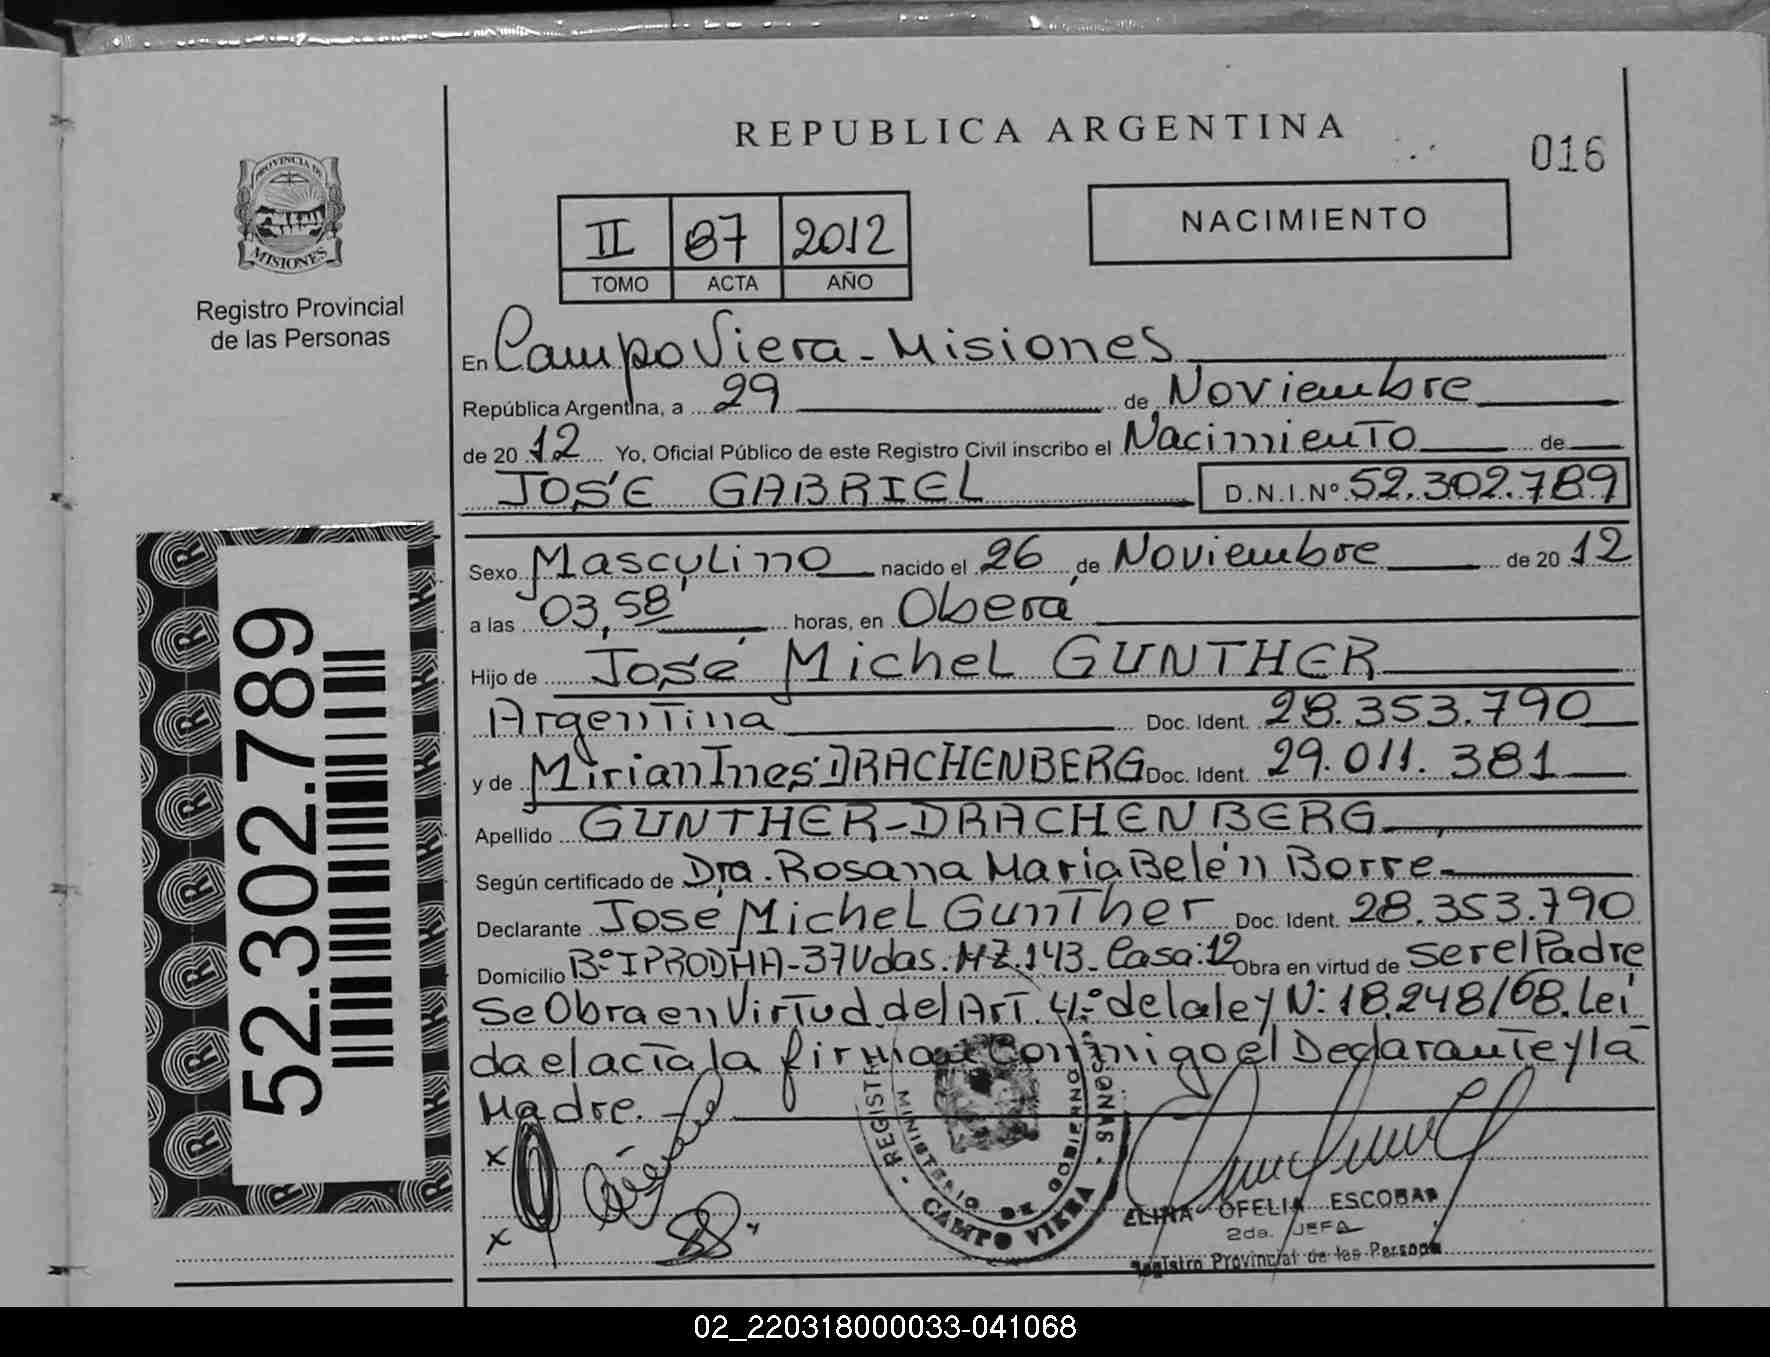 REPUBLICA ARGENTINA
016
PROVINCIA DE
MISIONES
Registro Provincial
de las Personas
II 87 2012
TOMO ACTA AÑO
NACIMIENTO
En Campo Viera - Misiones
República Argentina, a 29 de Noviembre
de 20 12 Yo, Oficial Público de este Registro Civil inscribo el Nacimiento de
JOSÉ GABRIEL D.N.I.Nº 52.302.789
Sexo Masculino nacido el 26 de Noviembre de 20 12
a las 03,58 horas, en Oberá
Hijo de José Michel GUNTHER
Argentina Doc. Ident. 28.353.790
y de Mirian Ines DRACHENBERG Doc. Ident. 29.011.381
Apellido GUNTHER-DRACHENBERG
Según certificado de Dra. Rosana Maria Belén Borre
Declarante José Michel Gunther Doc. Ident. 28.353.790
Domicilio Bº IPRODHA-37 Vdas. MZ.143- Casa:12 Obra en virtud de ser el Padre
Se Obra en Virtud del Art. 4º de la ley N: 18.248/68. Lei
da el acta la firman Conmigo el Declarante y la
Madre.
52.302.789
MINISTERIO DE GOBIERNO
CAMPO VIERA
ELINA OFELIA ESCOBAR
2da. JEFA
Registro Provincial de las Persona
02_220318000033-041068